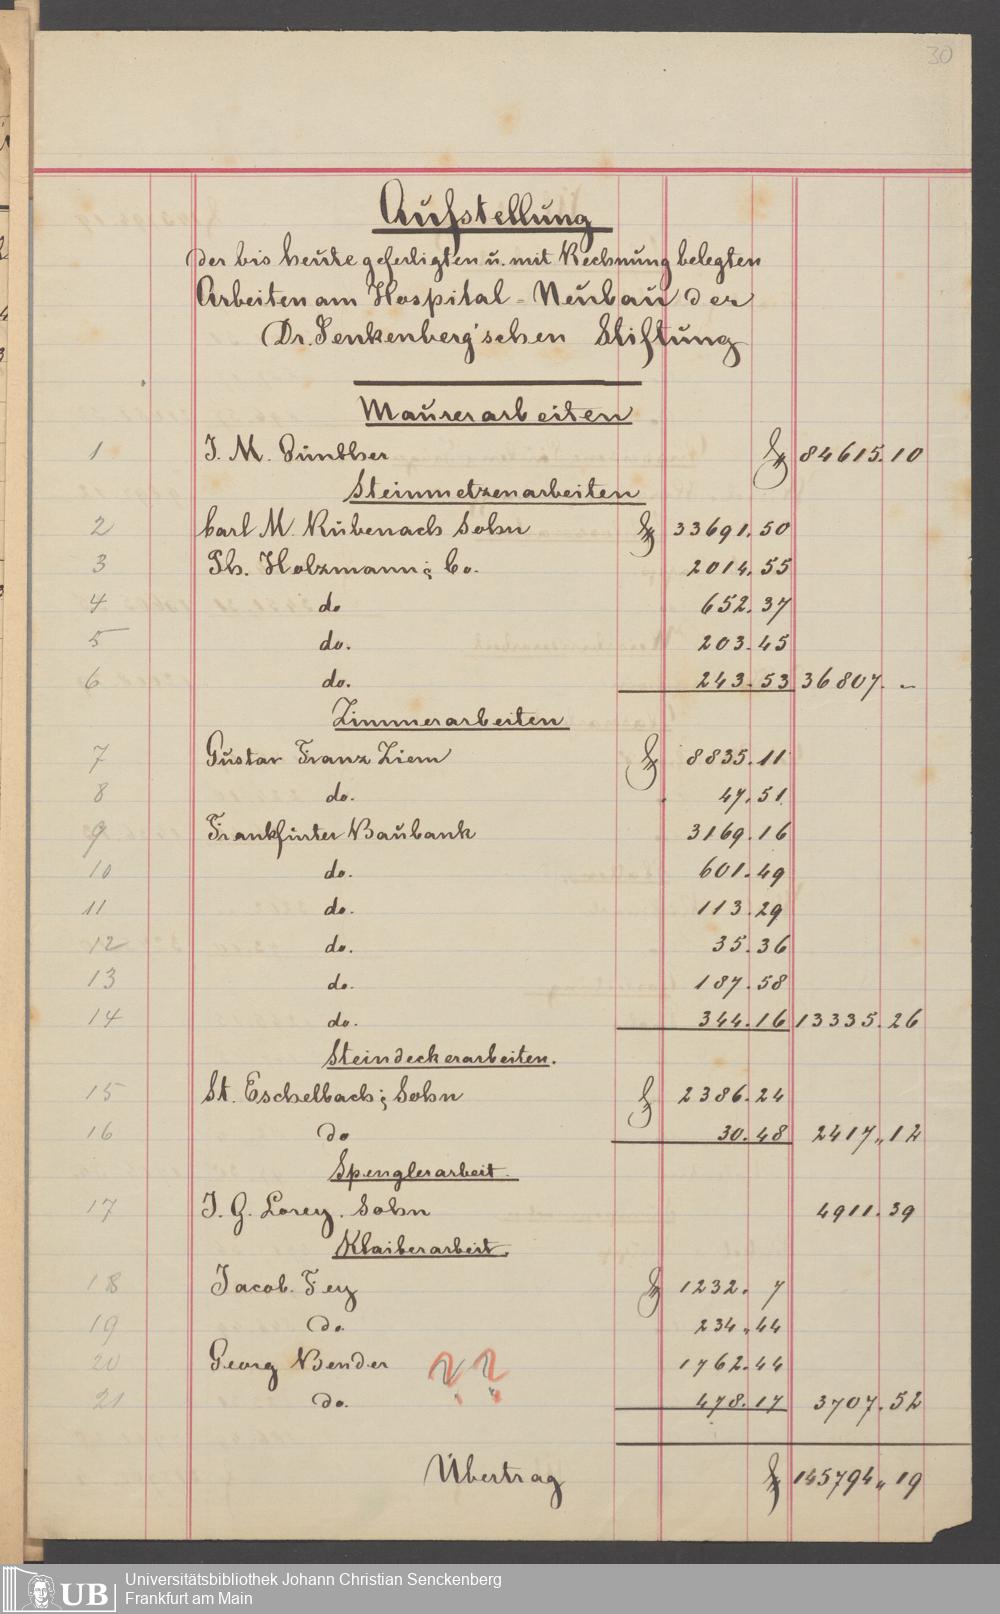 30
Aufstellung
der bis heute gefertigten u. mit Rechnung belegten
Arbeiten am Hospital-Neubau der
Dr. Senkenberg'schen Stiftung
Maurerarbeiten
1 J. M. Günther 84615.10
Steinmetzenarbeiten
2 Carl M. Rübenach Sohn 33691.50
3 Ph. Holzmann & Co. 2014.55
4 do 652.37
5 do. 203.45
6 do. 243.53 36807. –
Zimmerarbeiten
7 Gustav Franz Ziem 8835.11
8 do. 47.51
9 Frankfurter Baubank 3169.16
10 do. 601.49
11 do. 113.29
12 do. 35.36
13 do. 187.58
14 do. 344.16 13335.26
Steindeckerarbeiten.
15 St. Eschelbach & Sohn 2386.24
16 do 30.48 2417.12
Spenglerarbeit.
17 J. G. Lorey. Sohn 4911.39
Klaiberarbeit.
18 Jacob. Fey 1232. 7
19 do. 234.44
20 Georg Bender ?? 1762.44
21 do. 478.17 3707.52
Übertrag 145794.19
UB
Universitätsbibliothek Johann Christian Senckenberg
Frankfurt am Main